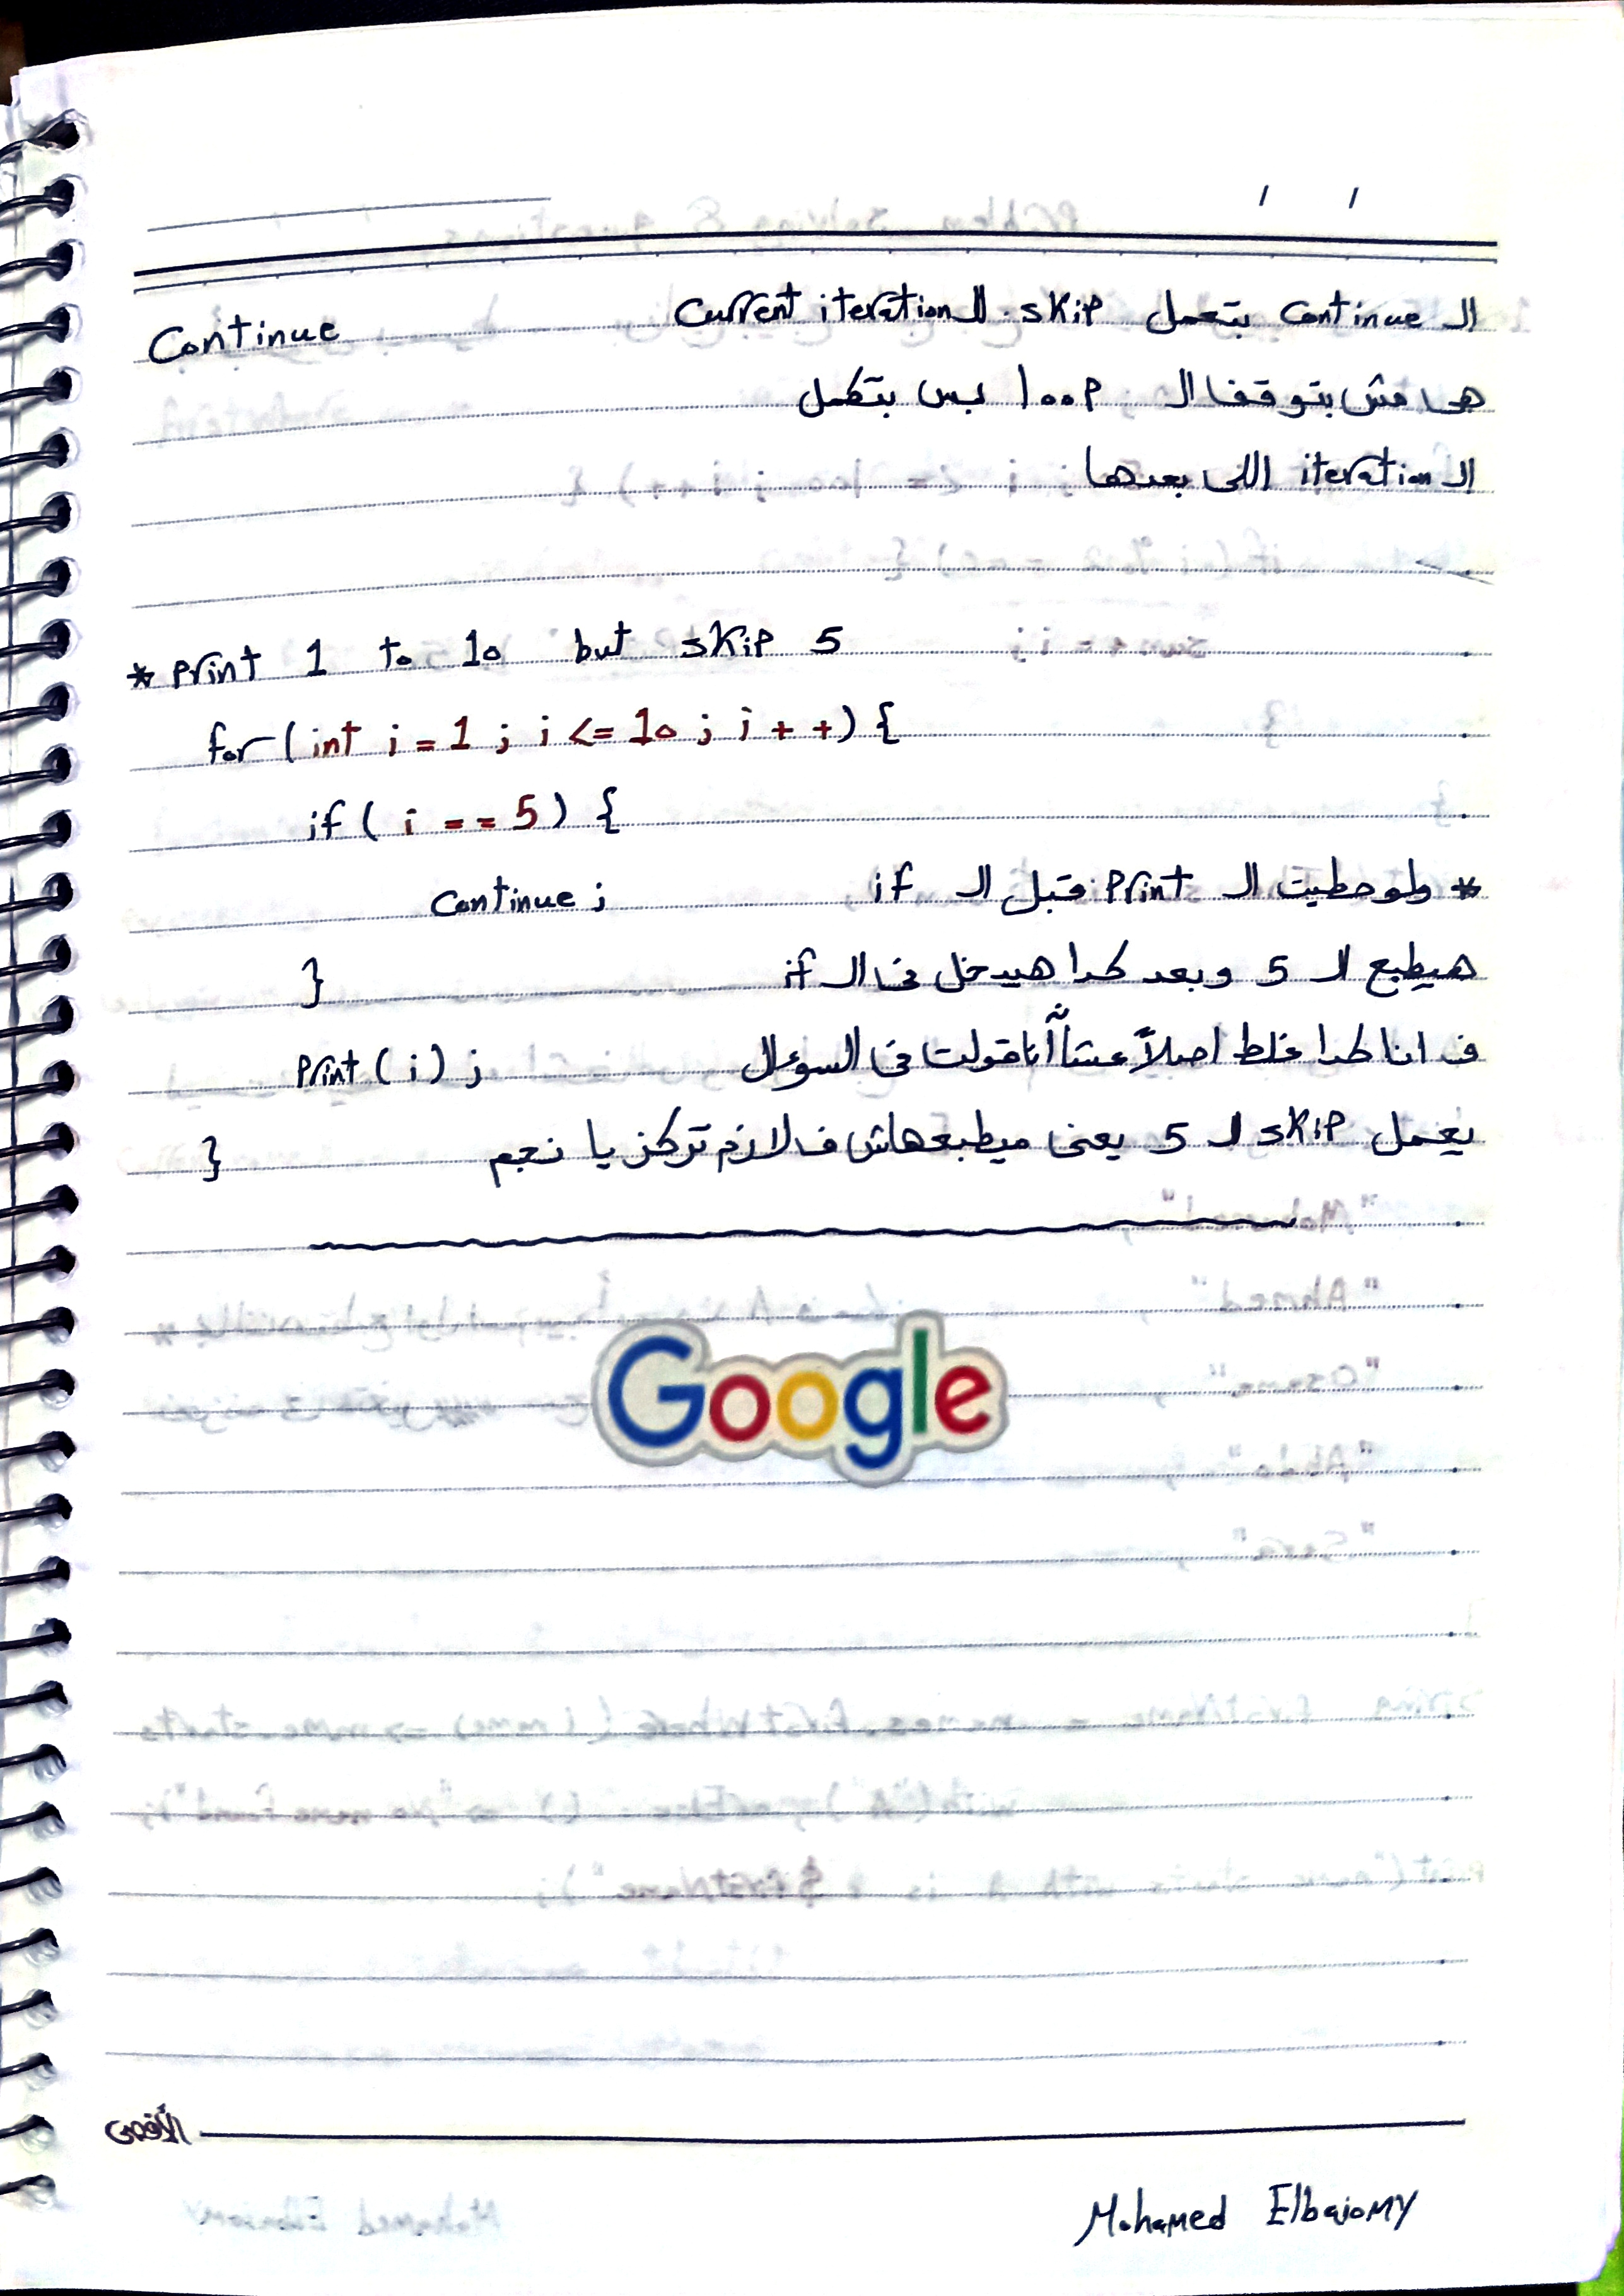 Continue
الـ continue بتعمل skip للـ current iteration
هى مش بتوقف الـ loop بس بتكمل
الـ iteration اللى بعدها
* print 1 to 10 but skip 5
for (int i = 1 ; i <= 10 ; i + +) {
if ( i = = 5 ) {
continue ;
}
print ( i ) ;
}
* ولو حطيت الـ print قبل الـ if
هيطبع الـ 5 وبعد كدا هيدخل فى الـ if
ف انا كدا غلط اصلاً عشان أنا قولت فى السؤال
يعمل skip لـ 5 يعنى ميطبعهاش ف لازم تركز يا نجم
Google
الأقصى
Mohamed Elbaiomy